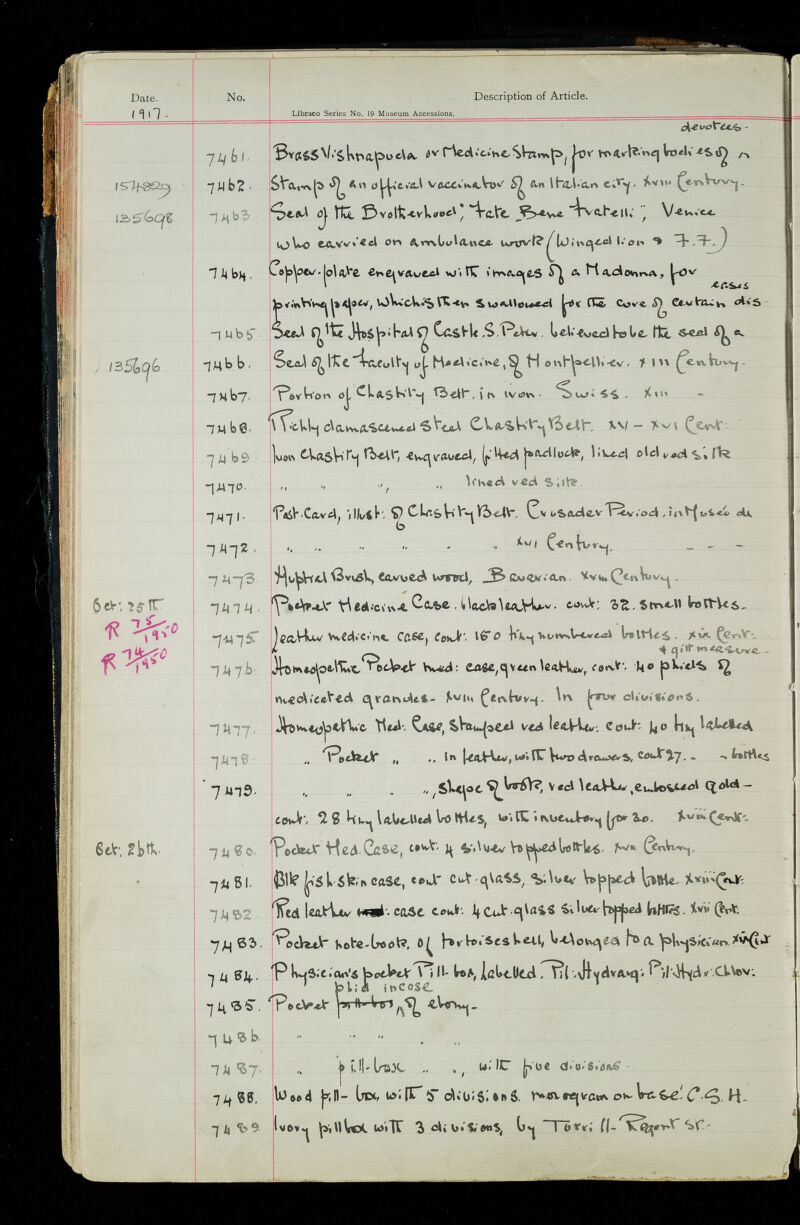 Date. No. Description of Article.
1917. Libraco Series No. 19 Museum Accessions.
devotees -
7461. Brass Vishnapuda or Medicine Stamp, for marking bodies of ^
7462. Stamp of an official vaccinator of an Italian city. XVIII Century.
135698 7463 Seal of the Brotherhood, "Fate Bene Fratelli", Venice
who carried on ambulance work (Winged lion & F.F.)
7464. Copper-plate engraved with images of a Madonna, for
cases
printing paper, which is then swallowed for the cure of certain dis
7465 Seal of the Hospital of Castle S. Peter. believed to be the seal of a
135696 7466. Seal of the Faculty of Medicine, of Montpellier. Century.
7467. Portion of Chastity Belt. in iron. Swiss. XVII -
7468. Richly damascened Steel Chastity Belt. XV - XVI Cent.
7469 Iron Chastity Belt, engraved, padlock, lined old red silk
7470. " " " , " lined red silk.
7471. Post-Card, illust: of Chastity Belt. Crusader Period. in Musée du
7472. " " " " " " XVI Century. - - -
7473 carved wood, Bavarian. XVIII Century.
Oct: 25th 7474. Pocket Medicine Case. black leather. cont: 32. small bottles.
R 75/1950 7475 Leather medicine case, cont: 160 tiny numbered bottles. XIX Cent:
R 74/1950 & gilt measure -
7476 Homeopathic Pocket med: case, green leather, cont: 40 phials of
medicated granules - XVIII Century. In four divisions.
7477. Homeopathic Med: Case, stamped red leather. cont: 40 tiny labelled
7478 " Pocket " " in leather, with two drawers, cont 27. - - bottles
7479. " " - " , shape of book, red leather, embossed gold -
cont: 28 tiny labelled bottles, with inventory for 20. XVIII Cent:
Oct: 26th. 7480. Pocket Med. Case, cont: 4 silver topped bottles. XVII Century.
7481. Blk fish skin case, cont cut-glass, silver topped bottle. XVIII Cent:
7482 Red leather case cont: 4 cut-glass silver topped bottles. XVII Cent.
7483. Pocket note-book, of tortoiseshell, belonged to a physician XVIII Cent
7484. Physician's pocket Pill-box, labelled. Pil: Hydrarg: Pil: Hydr: Chlor:
in case
7485. Pocket pill-box ^ of ebony -
7486. " " " " "
7487. " pill-box " " , with five divisions
7488. Wood pill-box, with 5 divisions. monogram on base: C.S.H.
7489 Ivory pillbox with 3 divisions, by - Regent St.